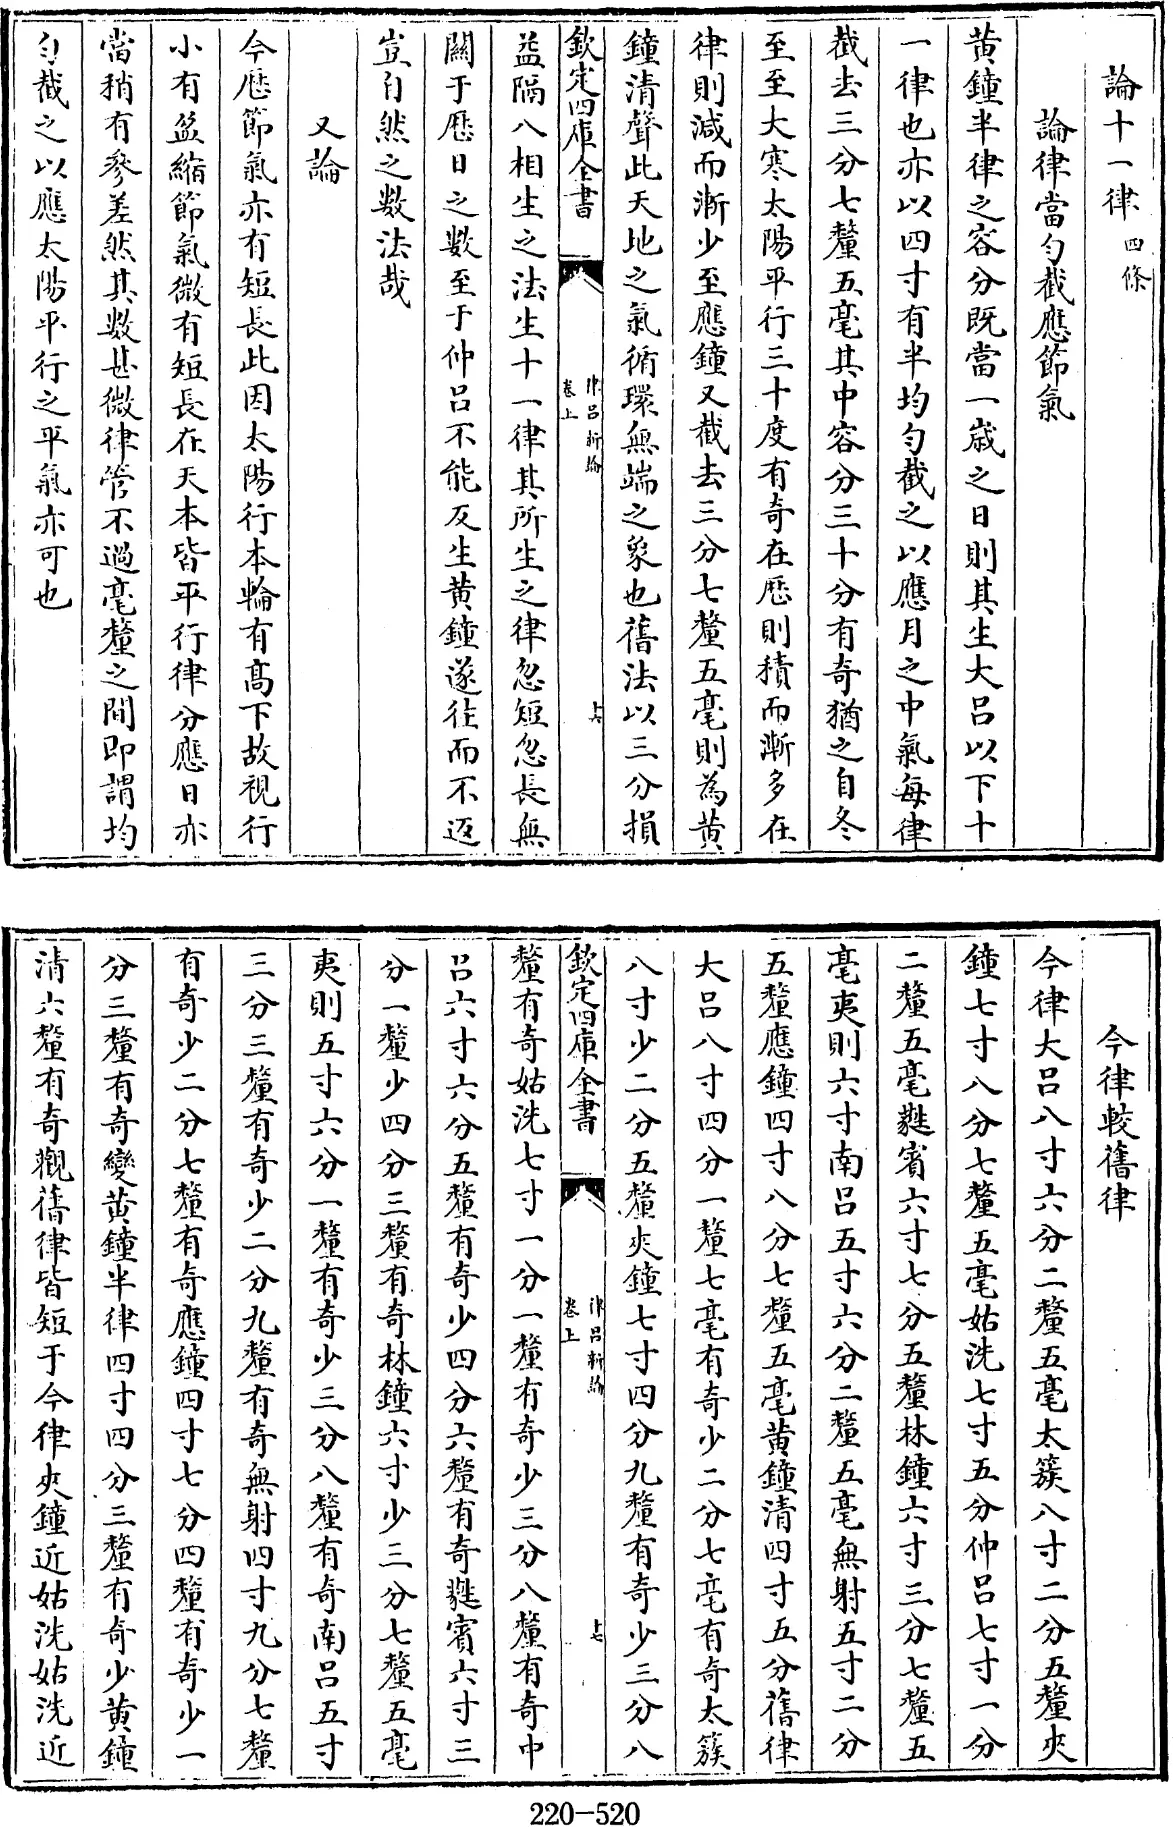 論十一律四條
論律當勻截應節氣
黃鐘半律之容分既當一歲之日則其生大呂以下十
一律也亦以四寸有半均勻截之以應月之中氣每律
截去三分七釐五毫其中容分三十分有奇猶之自冬
至至大寒太陽平行三十度有奇在厯則積而漸多在
律則減而漸少至應鐘又截去三分七釐五毫則為黃
鐘清聲此天地之氣循環無端之象也舊法以三分損
欽定四庫全書
律呂新論
卷上
十六
益隔八相生之法生十一律其所生之律忽短忽長無
關于厯日之數至于仲呂不能反生黃鐘遂往而不返
豈自然之數法哉
又論
今厯節氣亦有短長此因太陽行本輪有高下故視行
小有盈縮節氣微有短長在天本皆平行律分應日亦
當稍有參差然其數甚微律管不過毫釐之間即謂均
勻截之以應太陽平行之平氣亦可也
今律較舊律
今律大呂八寸六分二釐五毫太簇八寸二分五釐夾
鐘七寸八分七釐五毫姑洗七寸五分仲呂七寸一分
二釐五毫蕤賓六寸七分五釐林鐘六寸三分七釐五
毫夷則六寸南呂五寸六分二釐五毫無射五寸二分
五釐應鐘四寸八分七釐五毫黃鐘清四寸五分舊律
大呂八寸四分一釐七毫有奇少二分七毫有奇太簇
八寸少二分五釐夾鐘七寸四分九釐有奇少三分八
欽定四庫全書
律呂新論
卷上
十七
釐有奇姑洗七寸一分一釐有奇少三分八釐有奇中
呂六寸六分五釐有奇少四分六釐有奇蕤賓六寸三
分一釐少四分三釐有奇林鐘六寸少三分七釐五毫
夷則五寸六分一釐有奇少三分八釐有奇南呂五寸
三分三釐有奇少二分九釐有奇無射四寸九分七釐
有奇少二分七釐有奇應鐘四寸七分四釐有奇少一
分三釐有奇變黃鐘半律四寸四分三釐有奇少黃鐘
清六釐有奇觀舊律皆短于今律夾鐘近姑洗姑洗近
220-520